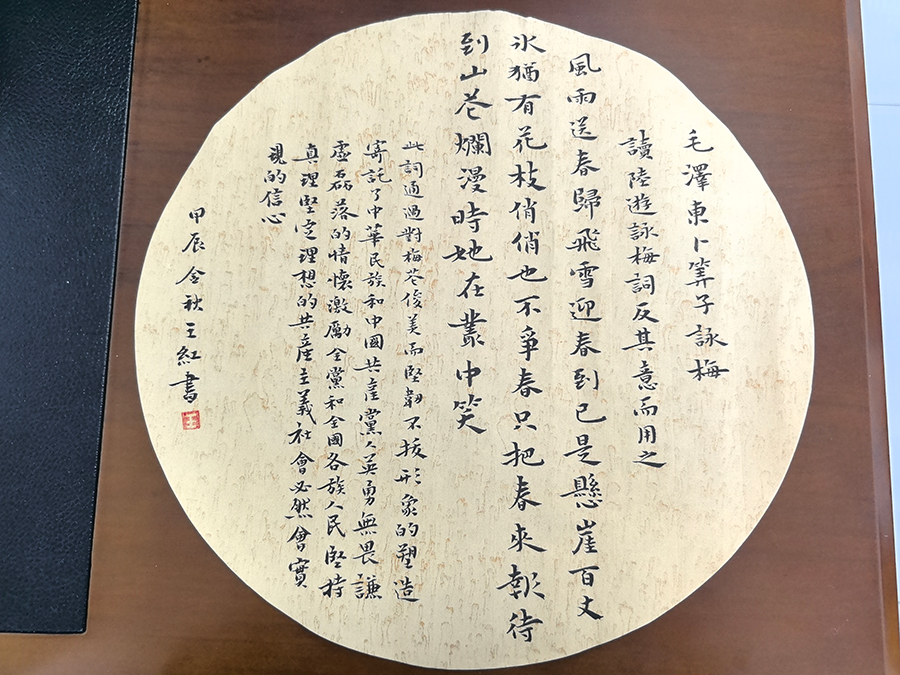 毛澤東卜筭子詠梅
讀陸遊詠梅詞反其意而用之
風雨送春歸飛雪迎春到已是懸崖百丈
氷猶有花枝俏俏也不爭春只把春來報待
到山花爛漫時她在叢中笑
此詞通過對梅花俊美而堅韌不拔形象的塑造
寄託了中華民族和中國共產黨人英勇無畏謙
虛磊落的情懷激勵全黨和全國各族人民堅持
真理堅定理想的共產主義社會必然會實
現的信心
甲辰金秋王紅書
王